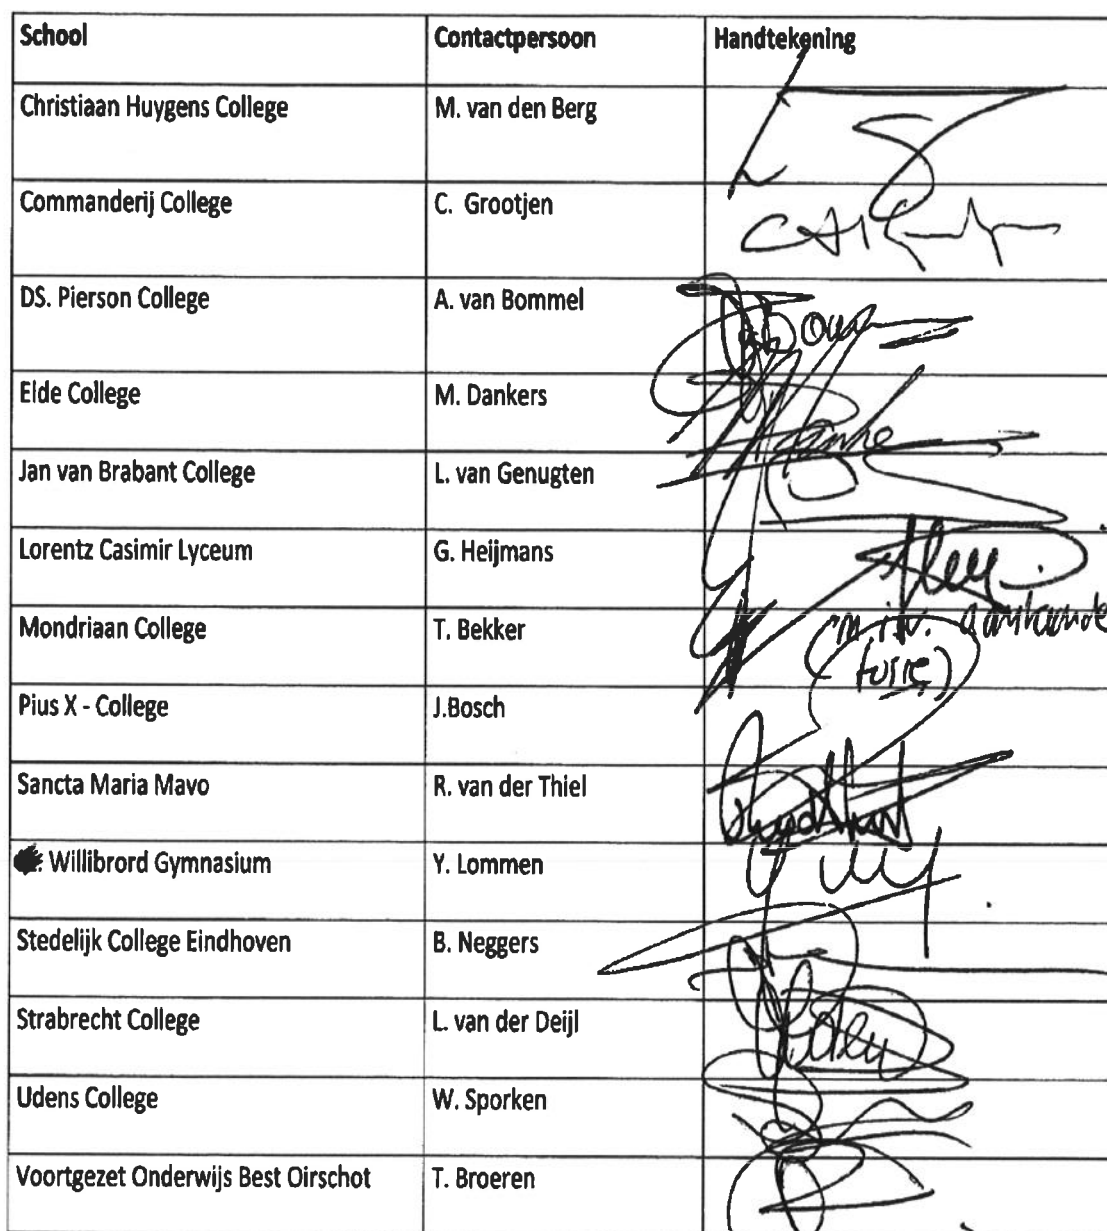 School Contactpersoon Handtekening
Christiaan Huygens College M. van den Berg
Commanderij College C. Grootjen
DS. Pierson College A. van Bommel
Elde College M. Dankers
Jan van Brabant College L. van Genugten
Lorentz Casimir Lyceum G. Heijmans
Mondriaan College T. Bekker
fusie)
Pius X - College J.Bosch
Sancta Maria Mavo R. van der Thiel
Willibrord Gymnasium Y. Lommen
Stedelijk College Eindhoven B. Neggers
Strabrecht College L. van der Deijl
Udens College W. Sporken
Voortgezet Onderwijs Best Oirschot T. Broeren